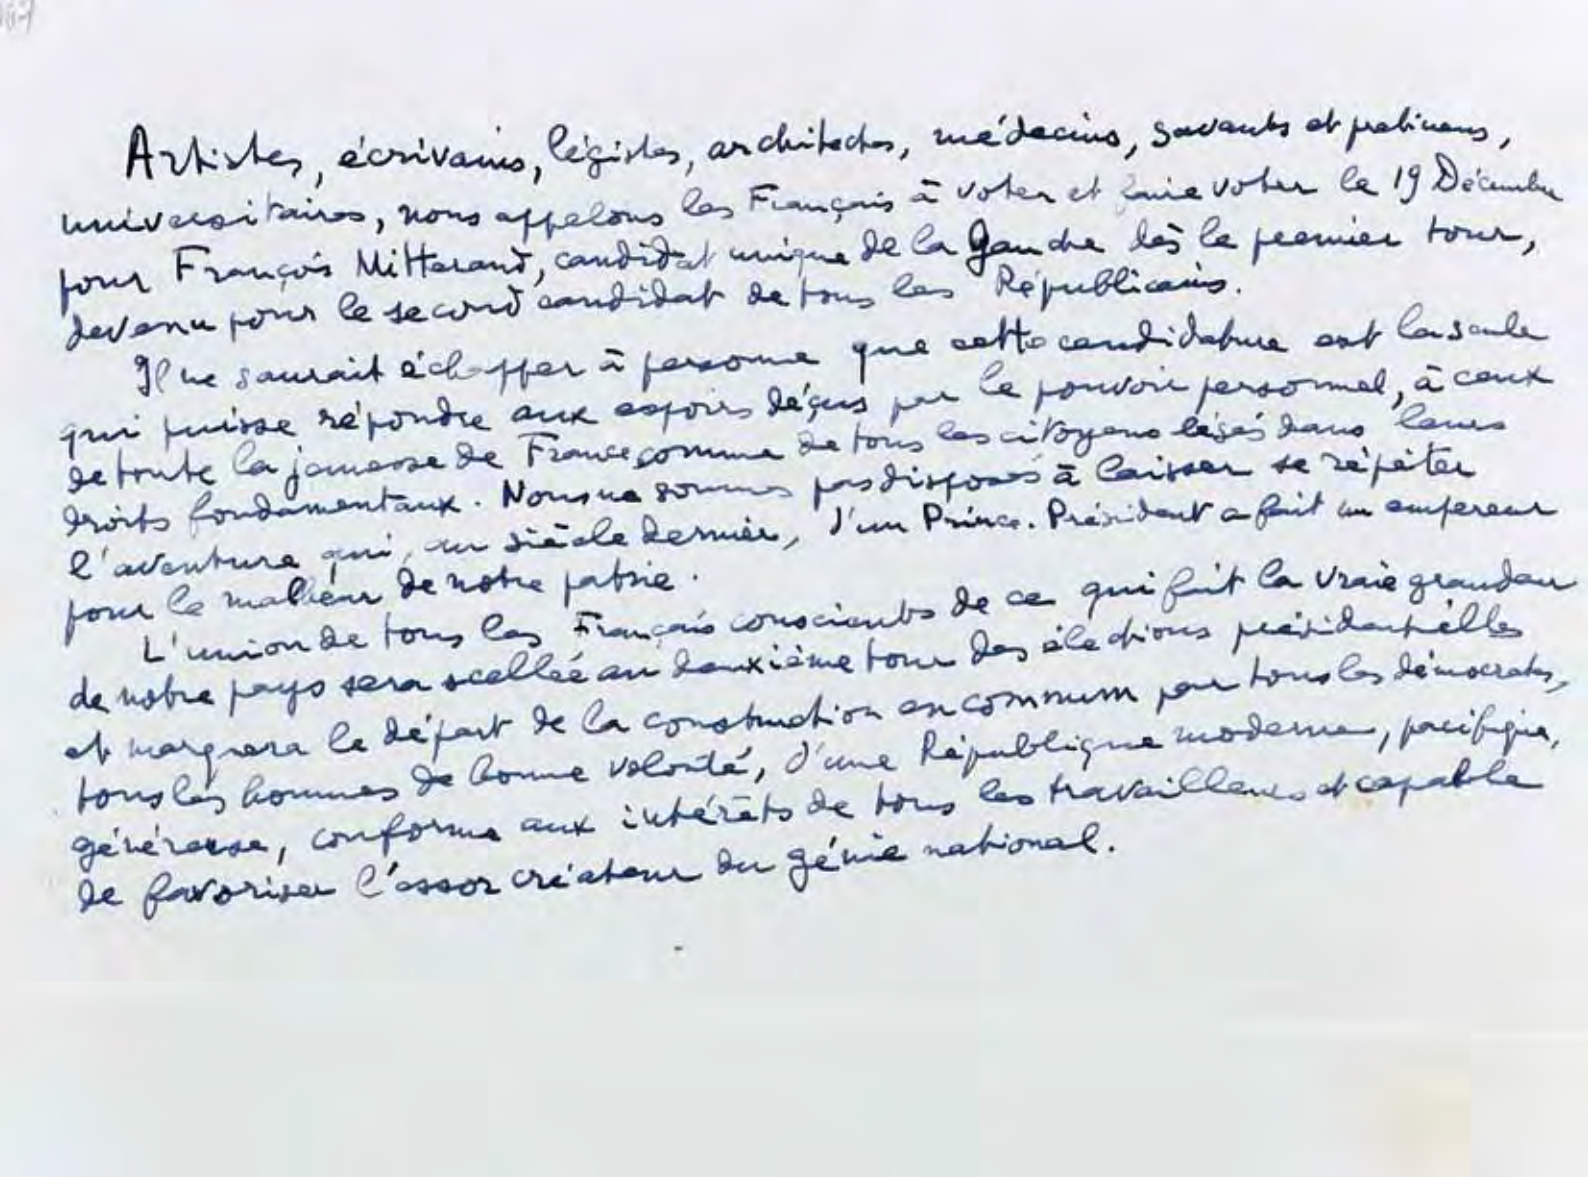 Artistes, écrivains, légistes, architectes, médecins, savants et praticiens,
universitaires, nous appelons les Français à voter et faire voter le 19 Décembre
pour François Mitterand, candidat unique de la Gauche dès le premier tour,
devenu pour le second candidat de tous les Républicains.
Il ne saurait échapper à personne que cette candidature est la seule
qui puisse répondre aux espoirs déçus par le pouvoir personnel, à ceux
de toute la jeunesse de France comme de tous les citoyens lésés dans leurs
droits fondamentaux. Nous ne sommes pas disposés à laisser se répéter
l'aventure qui, au siècle dernier, d'un Prince-Président a fait un empereur
pour le malheur de notre patrie.
L'union de tous les Français conscients de ce qui fait la vraie grandeur
de notre pays sera scellée au deuxième tour des élections présidentielles
et marquera le départ de la construction en commun par tous les démocrates,
tous les hommes de bonne volonté, d'une République moderne, pacifique,
généreuse, conforme aux intérêts de tous les travailleurs et capable
de favoriser l'essor créateur du génie national.